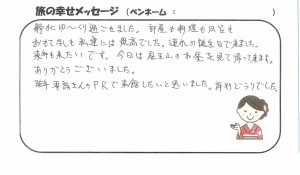 旅の幸せメッセージ（ペンネーム：　　　）
静かにゆ〜くり過ごせました。部屋も料理も風呂も
おもてなしも私達には最高でした。連れの誕生日で来ました。
来年も来たいです。今日は蔵王山のお釜を見て帰ってます。
ありがとうございました。
専務さんのPRで来館したいと思いました。評判どうりでした。